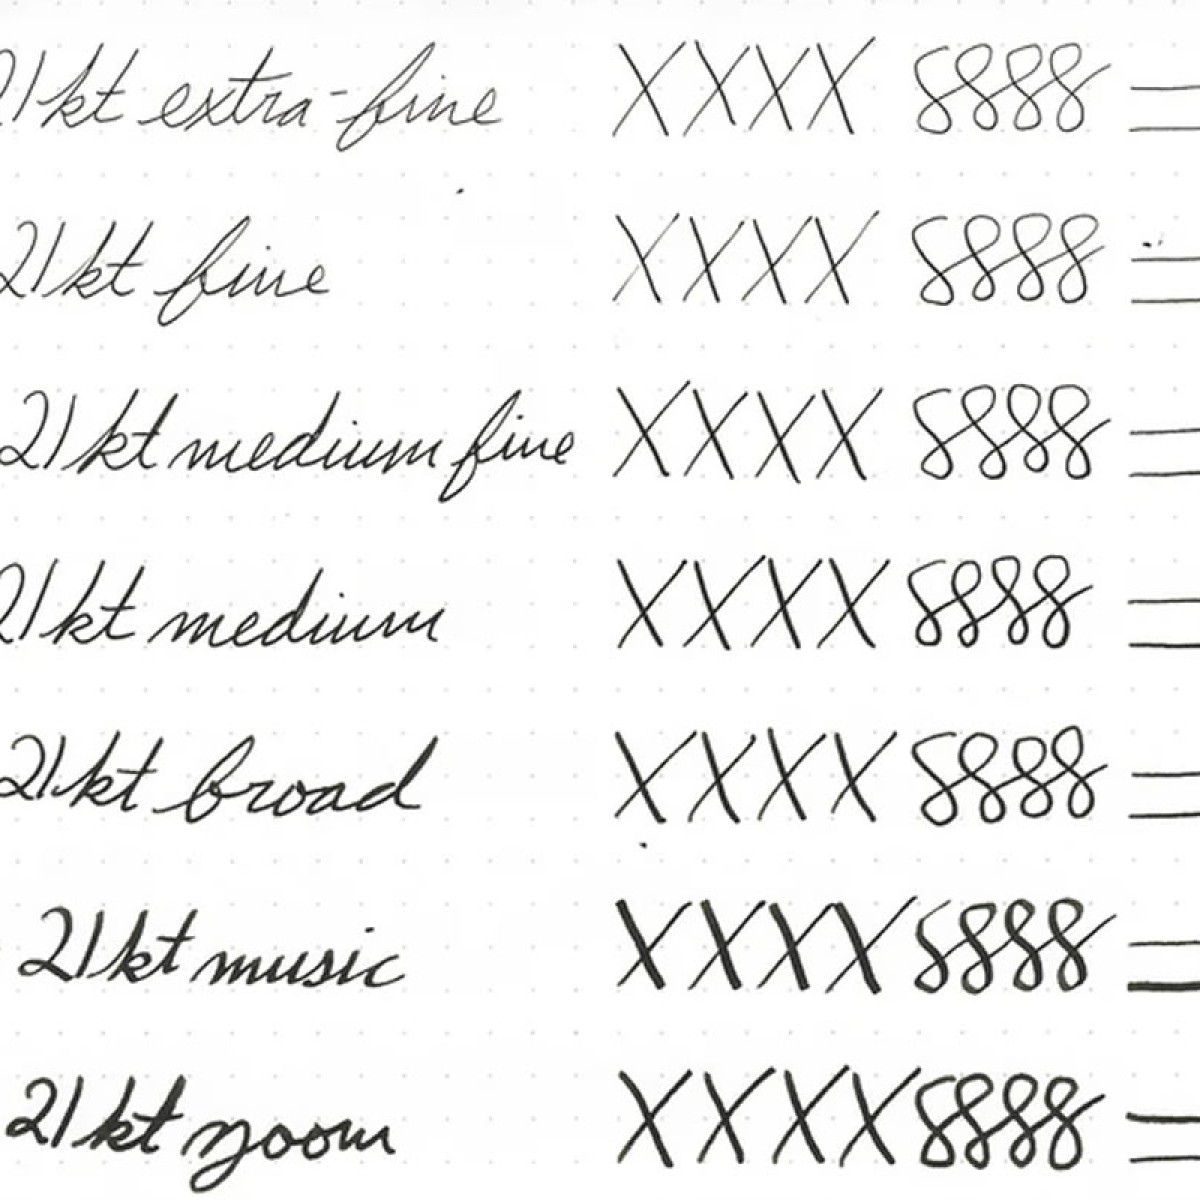 21kt extra-fine XXXX 8888
21kt fine XXXX 8888
21kt medium fine XXXX 8888
21kt medium XXXX 8888
21kt broad XXXX 8888
21kt music XXXX 8888
21kt zoom XXXX 8888